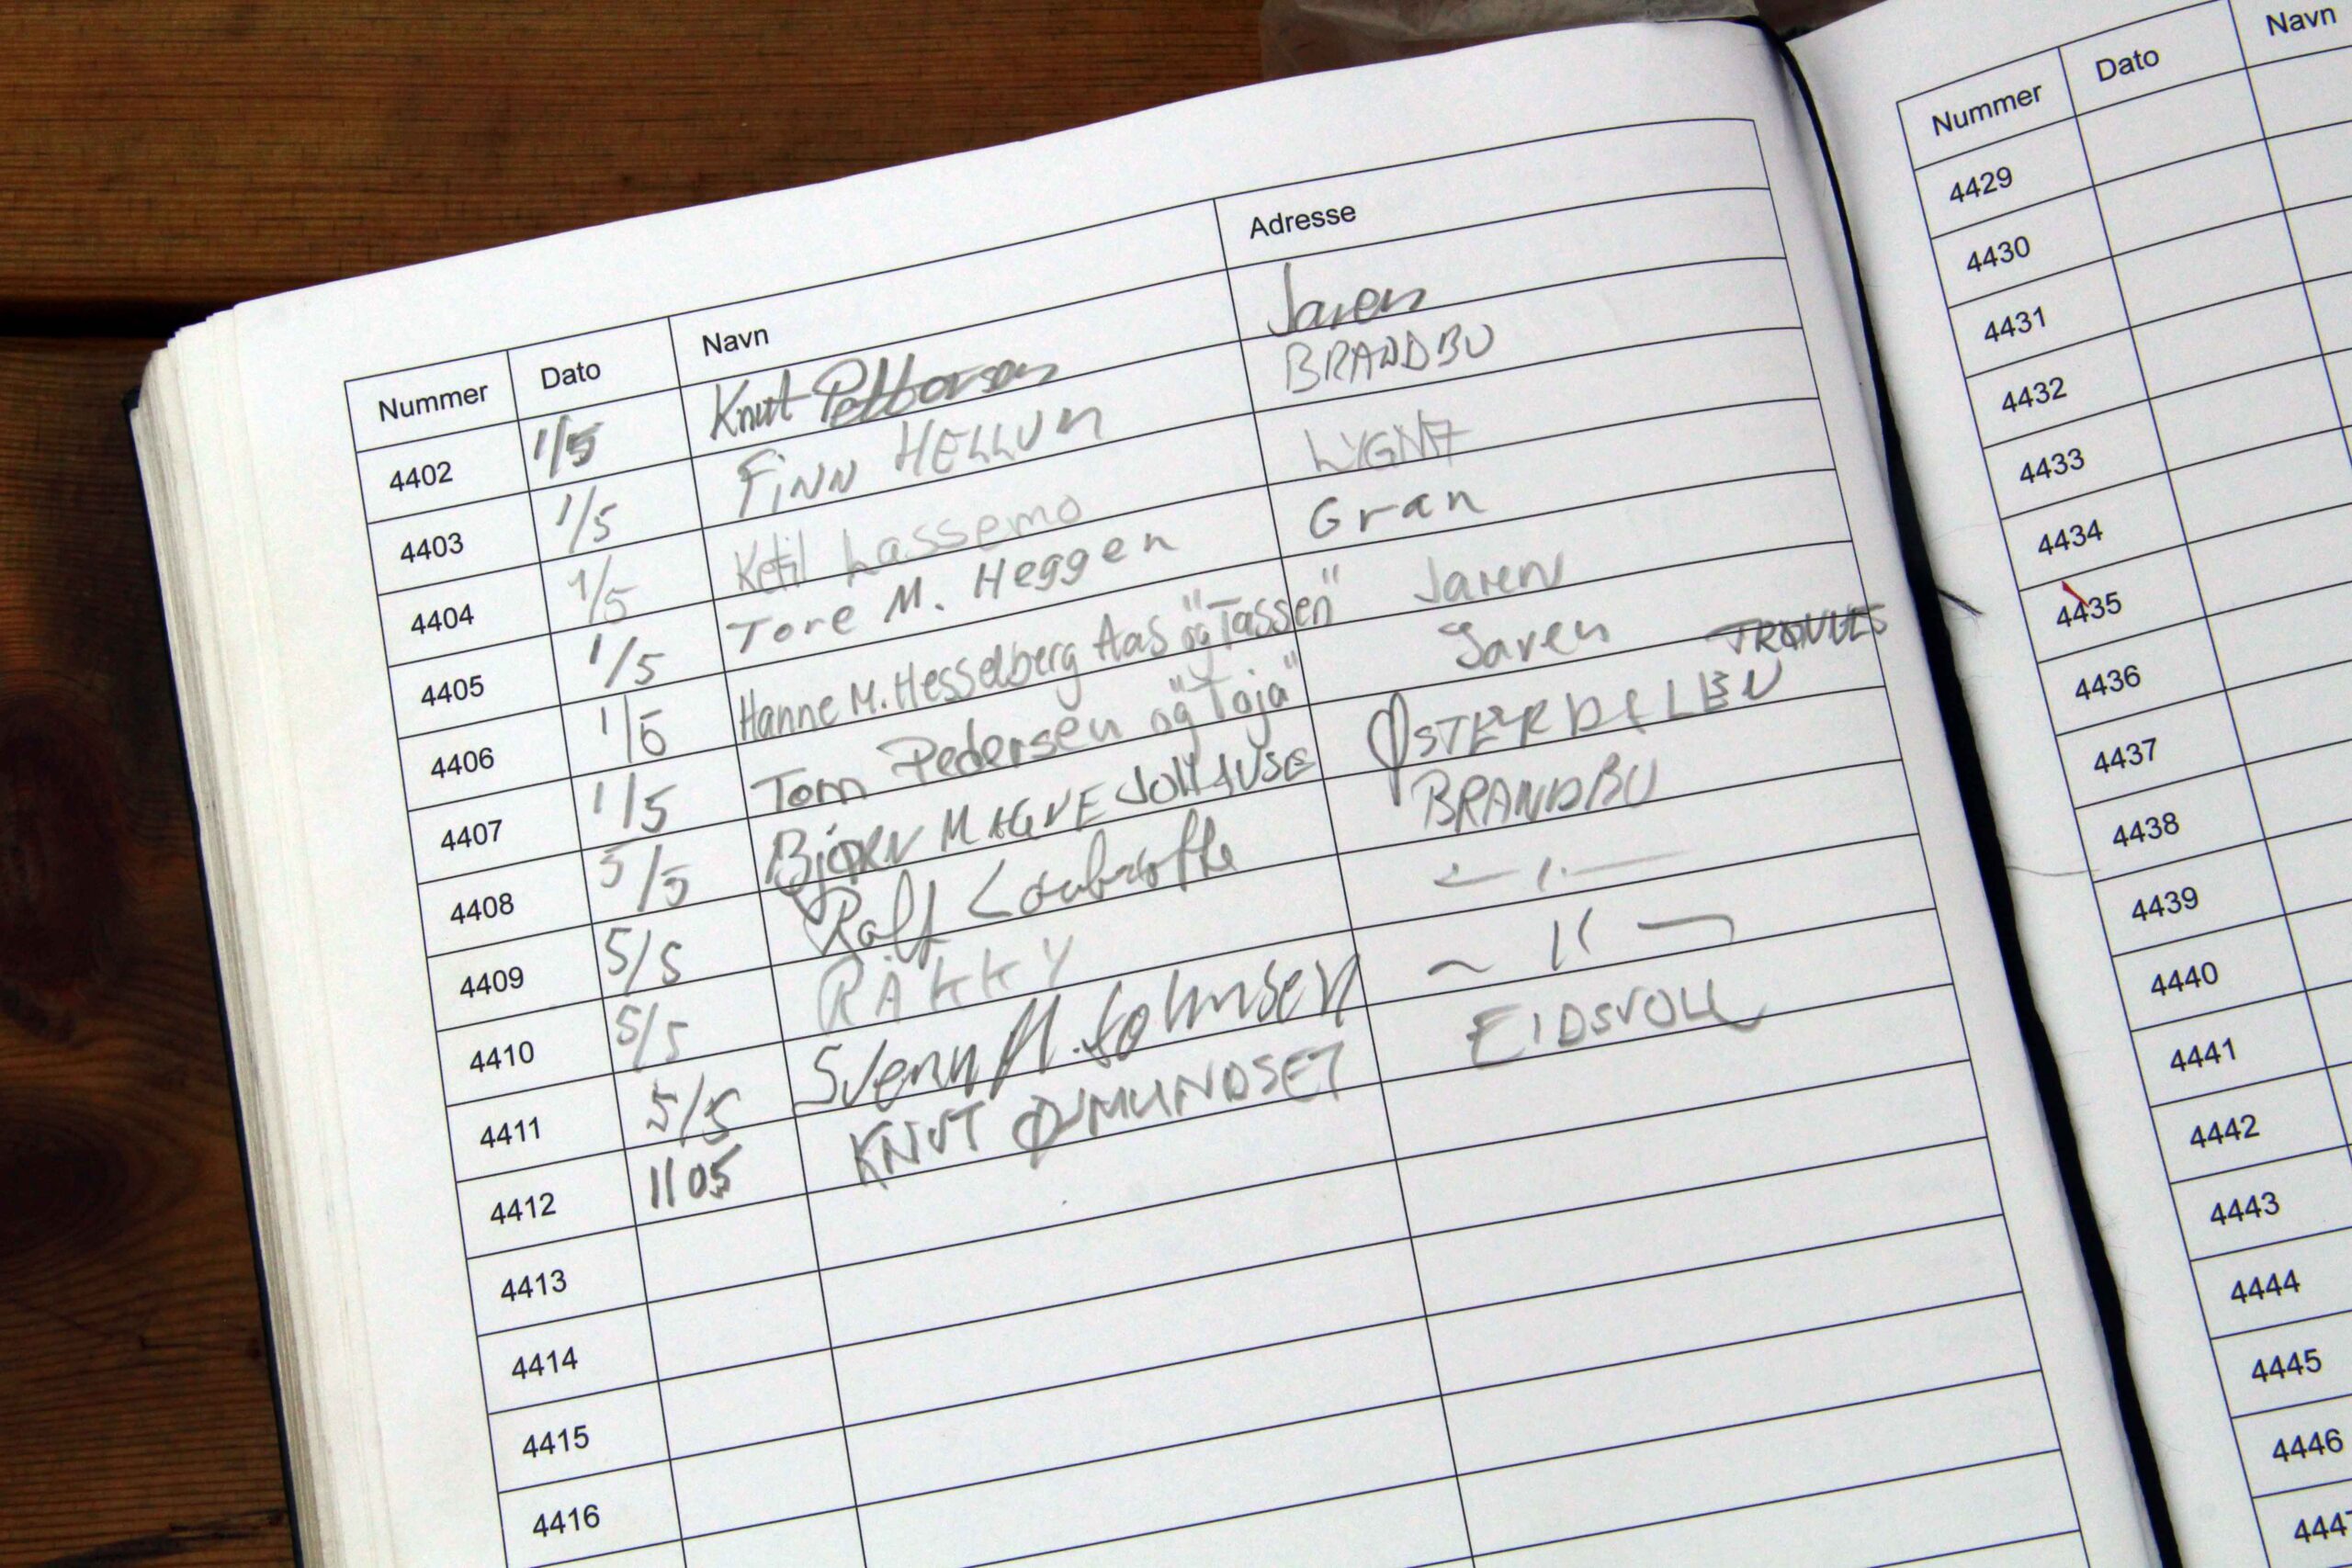 Nummer Dato Navn Adresse
4402 1/5 Knut Pettersen Jaren
4403 1/5 FINN HELLUM BRANDBU
4404 1/5 Ketil Lassemo LYGNA
4405 1/5 Tore M. Heggen Gran
4406 1/5 Hanne M. Hesselberg Aas og "Tassen" Jaren
4407 1/5 Tom Pedersen og "Toja" Jaren
4408 5/5 BJØRN MAGNE ØSTERDALEN
4409 5/5 Ralf BRANDBU
4410 5/5 RAKKY
4411 5/5 M. — 11 —
4412 11 05 KNUT EIDSVOLL
4413
4414
4415
4416
Nummer Dato Navn
4429
4430
4431
4432
4433
4434
4435
4436
4437
4438
4439
4440
4441
4442
4443
4444
4445
4446